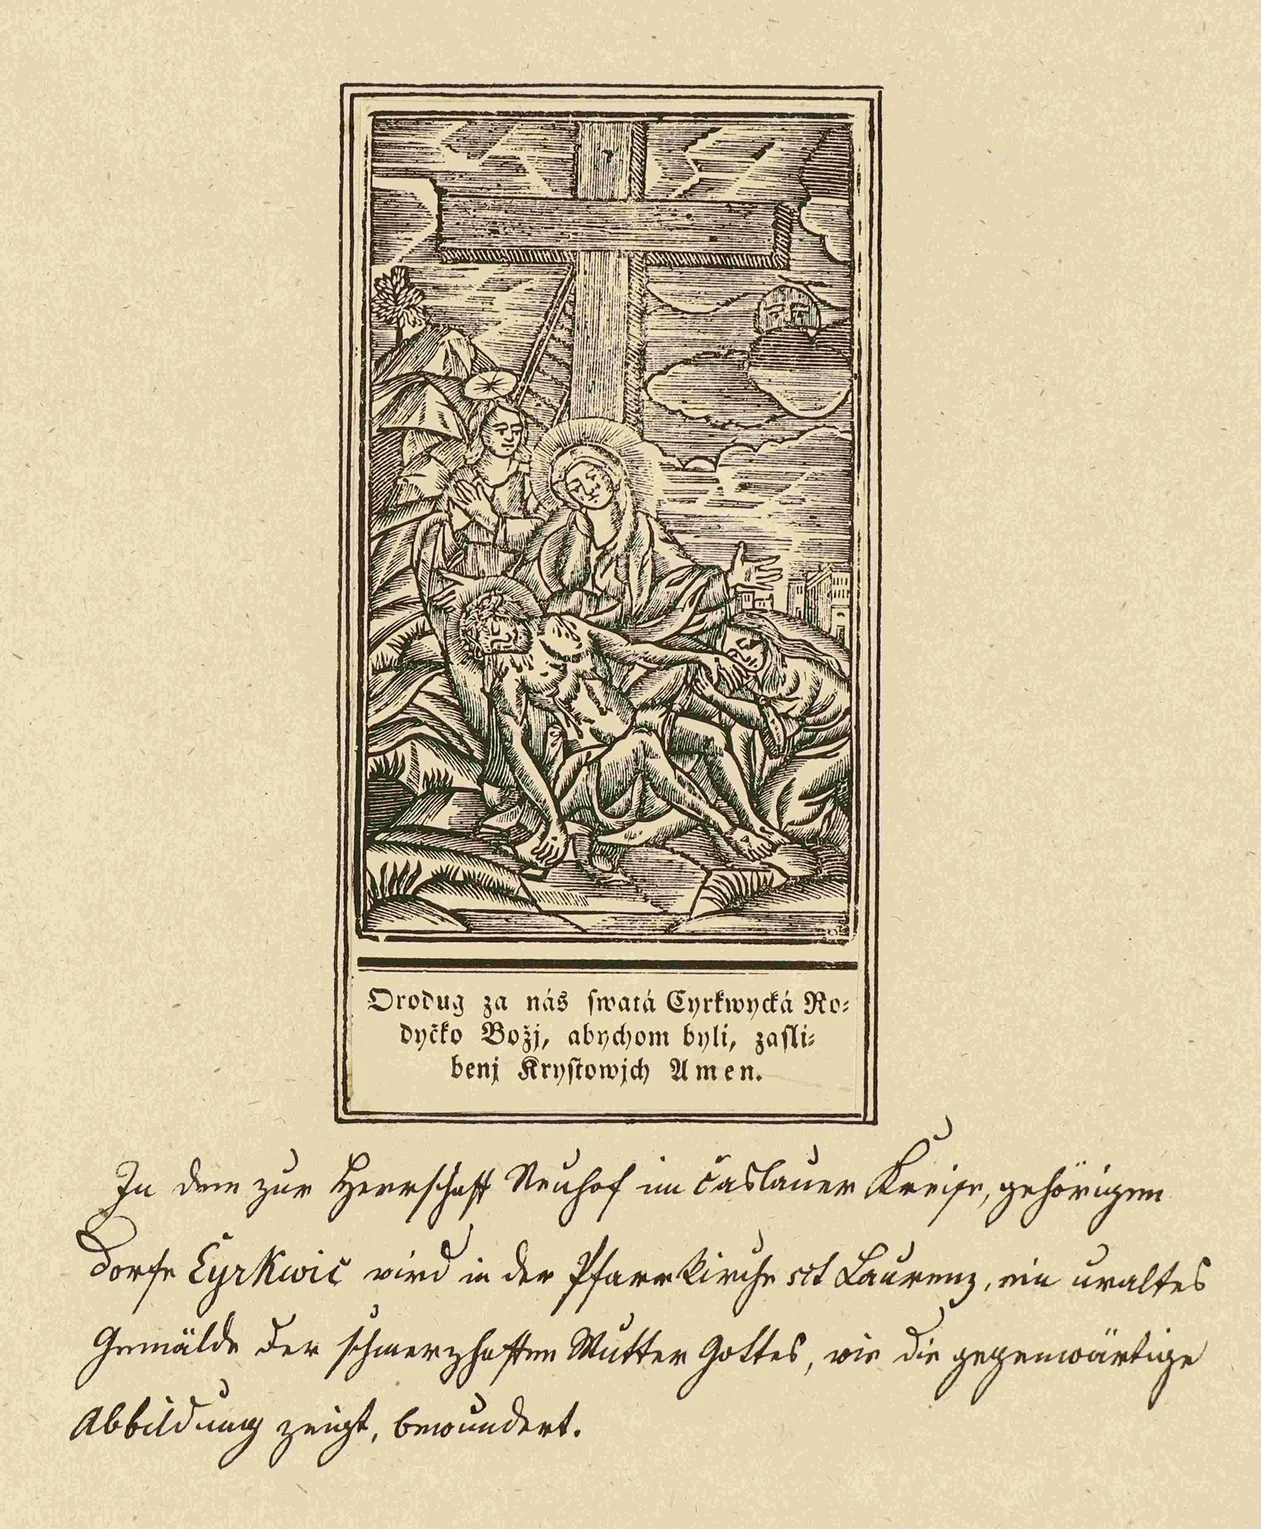 Orodug za nás swatá Cyrkwycká Ro⸗
dyčko Božj, abychom byli, zasli⸗
benj Krystowjch Amen.
In dem zur Herrschaft Neuhof im Časlauer Kreise, gehörigen
Dorfe Cyrkwic wird in der Pfarrkirche sct Laurenz, ein uraltes
Gemälde der schmerzhaften Mutter Gottes, wie die gegenwärtige
Abbildung zeigt, bewundert.